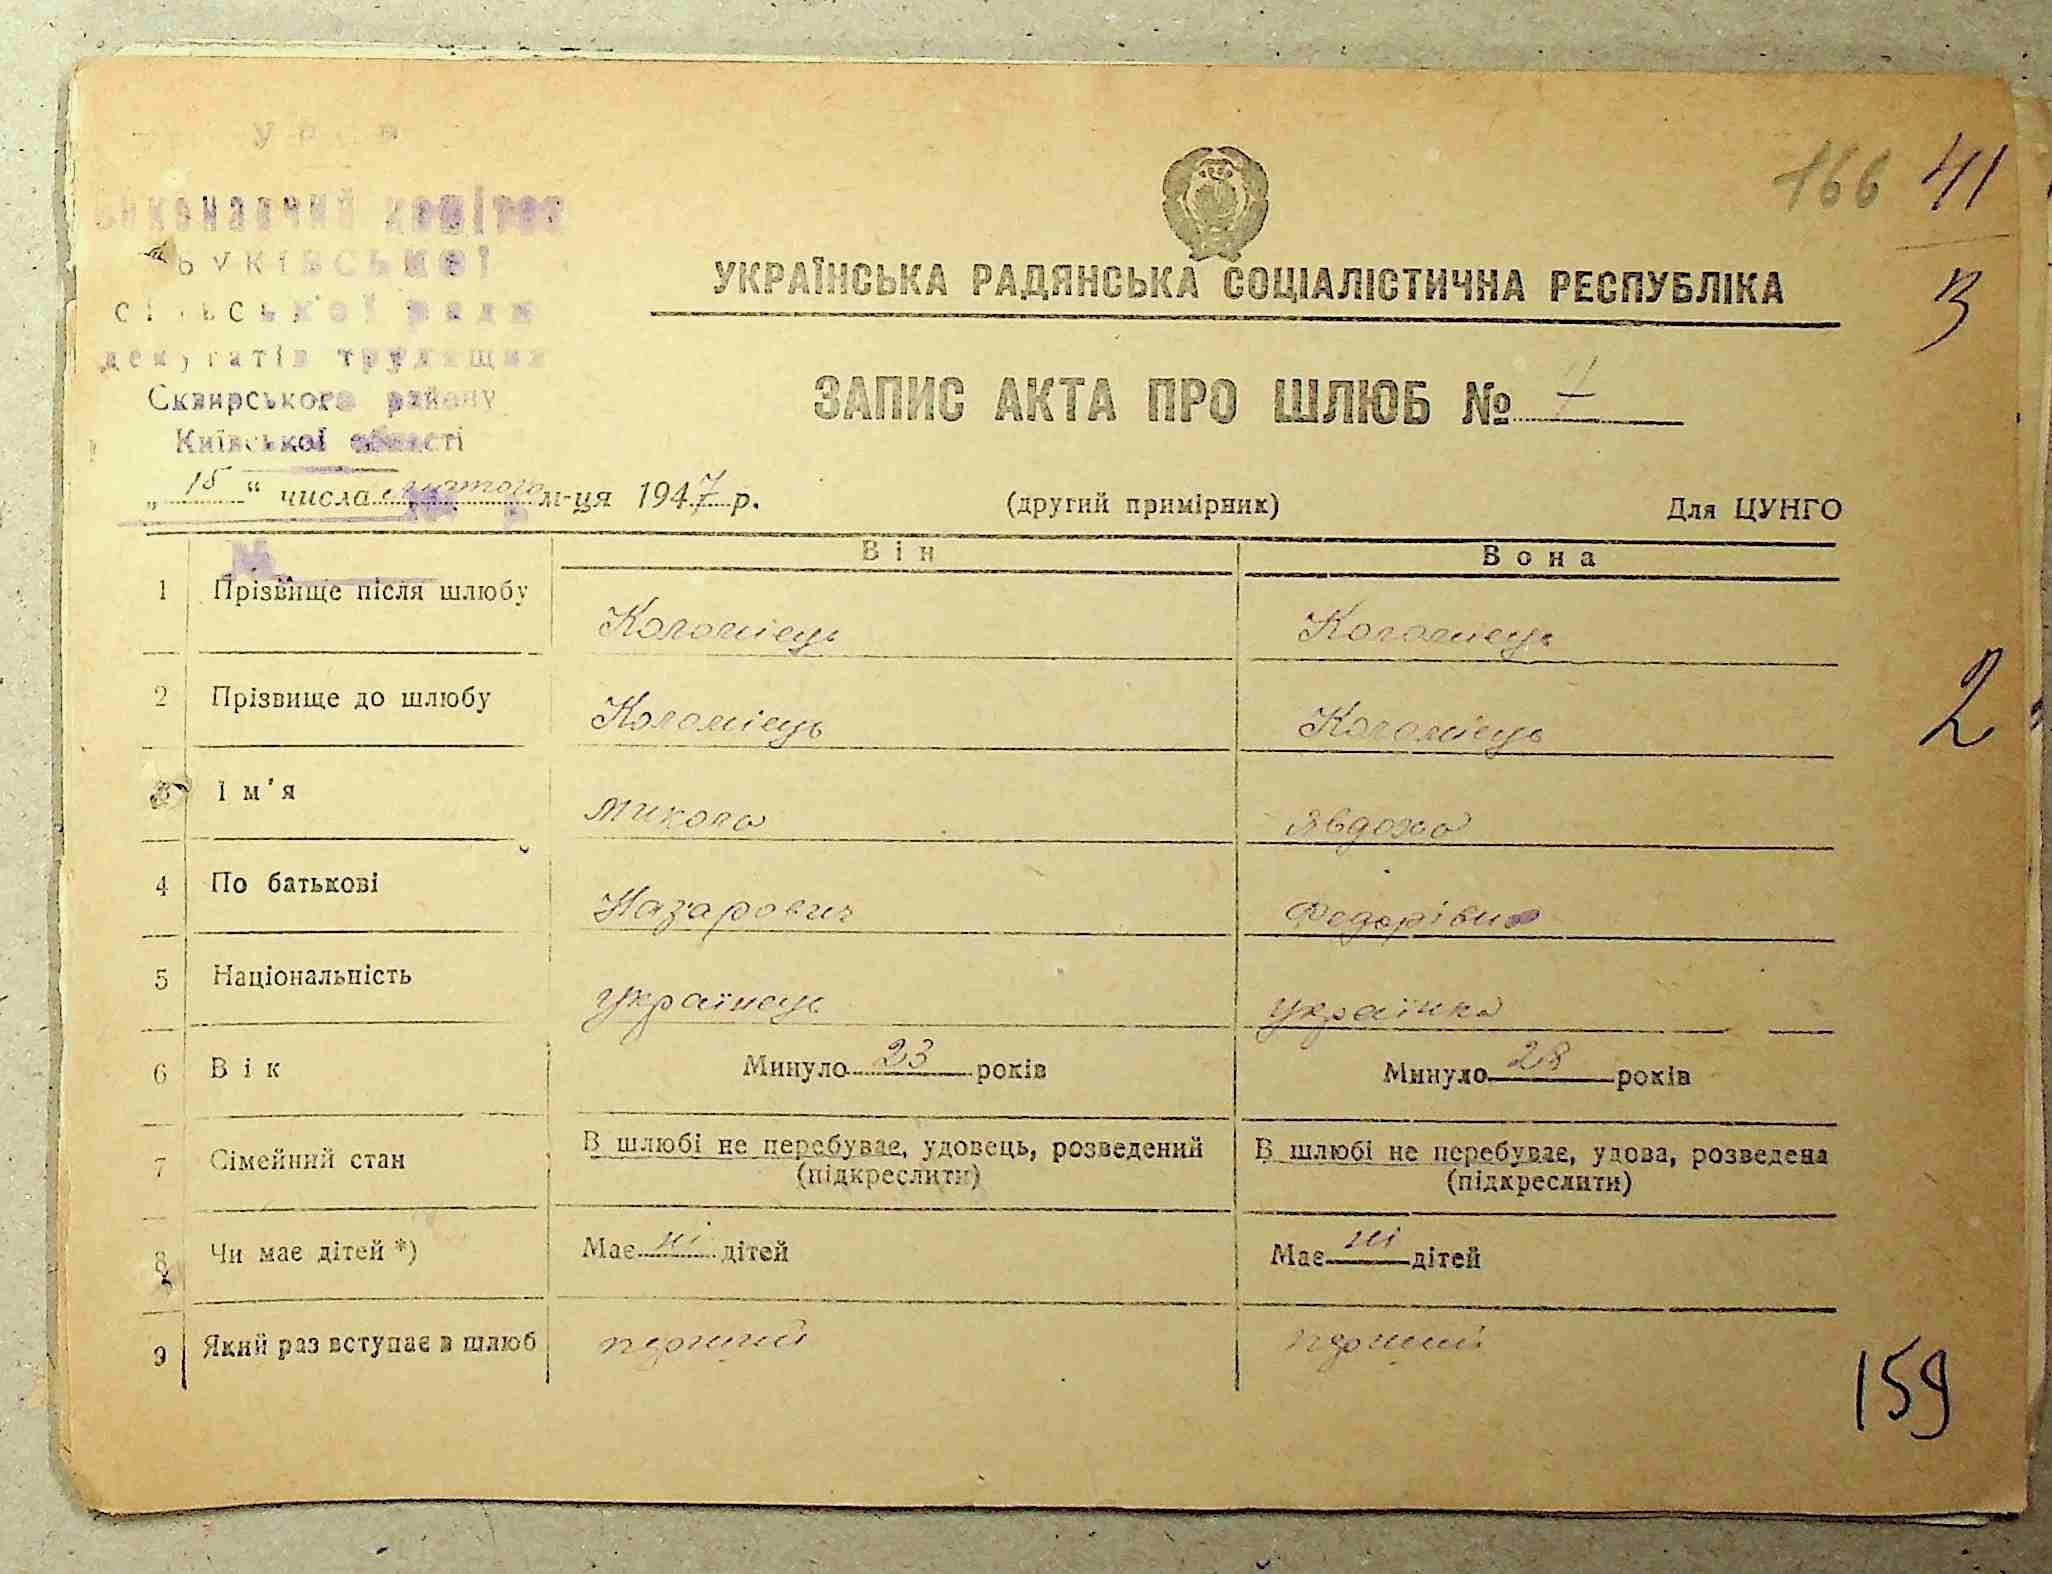 УРСР
Виконавчий комітет
Буківської
сільської ради
депутатів трудящих
Сквирського району
Київської області
166 41
УКРАЇНСЬКА РАДЯНСЬКА СОЦІАЛІСТИЧНА РЕСПУБЛІКА
В
ЗАПИС АКТА ПРО ШЛЮБ №
„ 15 “ числа лютого м-ця 1947 р. (другий примірник) Для ЦУНГО
№
Він Вона
1 Прізвище після шлюбу Коломієць Коломієць
2 Прізвище до шлюбу Коломієць Коломієць
2
3 Ім'я Микола Явдоха
4 По батькові Назарович Федорівна
5 Національність українець українка
6 Вік Минуло 23 років Минуло 28 років
7 Сімейний стан В шлюбі не перебуває, удовець, розведений В шлюбі не перебуває, удова, розведена
(підкреслити) (підкреслити)
8 Чи має дітей *) Має ні дітей Має ні дітей
9 Який раз вступає в шлюб перший перший
159